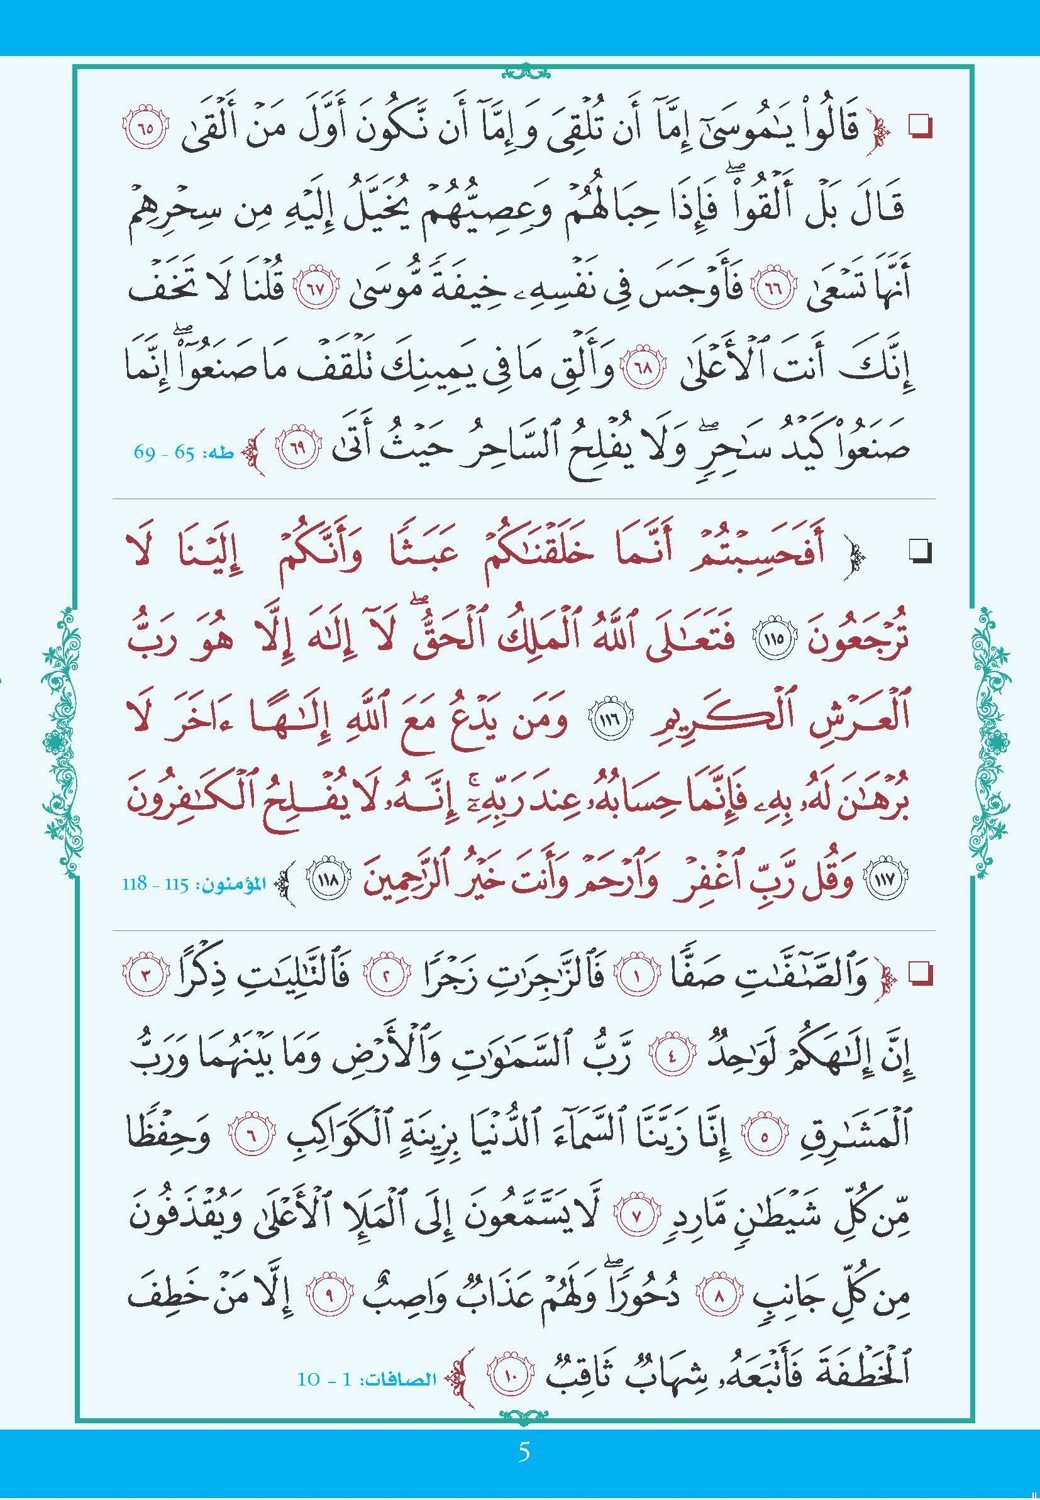 ❏ ﴿ قَالُوا۟ يَـٰمُوسَىٰٓ إِمَّآ أَن تُلْقِىَ وَإِمَّآ أَن نَّكُونَ أَوَّلَ مَنْ أَلْقَىٰ ٦٥
قَالَ بَلْ أَلْقُوا۟ ۖ فَإِذَا حِبَالُهُمْ وَعِصِيُّهُمْ يُخَيَّلُ إِلَيْهِ مِن سِحْرِهِمْ
أَنَّهَا تَسْعَىٰ ٦٦ فَأَوْجَسَ فِى نَفْسِهِۦ خِيفَةً مُّوسَىٰ ٦٧ قُلْنَا لَا تَخَفْ
إِنَّكَ أَنتَ ٱلْأَعْلَىٰ ٦٨ وَأَلْقِ مَا فِى يَمِينِكَ تَلْقَفْ مَا صَنَعُوٓا۟ ۖ إِنَّمَا
صَنَعُوا۟ كَيْدُ سَـٰحِرٍ ۖ وَلَا يُفْلِحُ ٱلسَّاحِرُ حَيْثُ أَتَىٰ ٦٩ ﴾ طه: 65 - 69
❏ ﴿ أَفَحَسِبْتُمْ أَنَّمَا خَلَقْنَـٰكُمْ عَبَثًا وَأَنَّكُمْ إِلَيْنَا لَا
تُرْجَعُونَ ١١٥ فَتَعَـٰلَى ٱللَّهُ ٱلْمَلِكُ ٱلْحَقُّ ۖ لَآ إِلَـٰهَ إِلَّا هُوَ رَبُّ
ٱلْعَرْشِ ٱلْكَرِيمِ ١١٦ وَمَن يَدْعُ مَعَ ٱللَّهِ إِلَـٰهًا ءَاخَرَ لَا
بُرْهَـٰنَ لَهُۥ بِهِۦ فَإِنَّمَا حِسَابُهُۥ عِندَ رَبِّهِۦٓ ۚ إِنَّهُۥ لَا يُفْلِحُ ٱلْكَـٰفِرُونَ
١١٧ وَقُل رَّبِّ ٱغْفِرْ وَٱرْحَمْ وَأَنتَ خَيْرُ ٱلرَّٰحِمِينَ ١١٨ ﴾ المؤمنون: 115 - 118
❏ ﴿ وَٱلصَّـٰٓفَّـٰتِ صَفًّا ١ فَٱلزَّٰجِرَٰتِ زَجْرًا ٢ فَٱلتَّـٰلِيَـٰتِ ذِكْرًا ٣
إِنَّ إِلَـٰهَكُمْ لَوَٰحِدٌ ٤ رَّبُّ ٱلسَّمَـٰوَٰتِ وَٱلْأَرْضِ وَمَا بَيْنَهُمَا وَرَبُّ
ٱلْمَشَـٰرِقِ ٥ إِنَّا زَيَّنَّا ٱلسَّمَآءَ ٱلدُّنْيَا بِزِينَةٍ ٱلْكَوَاكِبِ ٦ وَحِفْظًا
مِّن كُلِّ شَيْطَـٰنٍ مَّارِدٍ ٧ لَّا يَسَّمَّعُونَ إِلَى ٱلْمَلَإِ ٱلْأَعْلَىٰ وَيُقْذَفُونَ
مِن كُلِّ جَانِبٍ ٨ دُحُورًا ۖ وَلَهُمْ عَذَابٌ وَاصِبٌ ٩ إِلَّا مَنْ خَطِفَ
ٱلْخَطْفَةَ فَأَتْبَعَهُۥ شِهَابٌ ثَاقِبٌ ١٠ ﴾ الصافات: 1 - 10
5